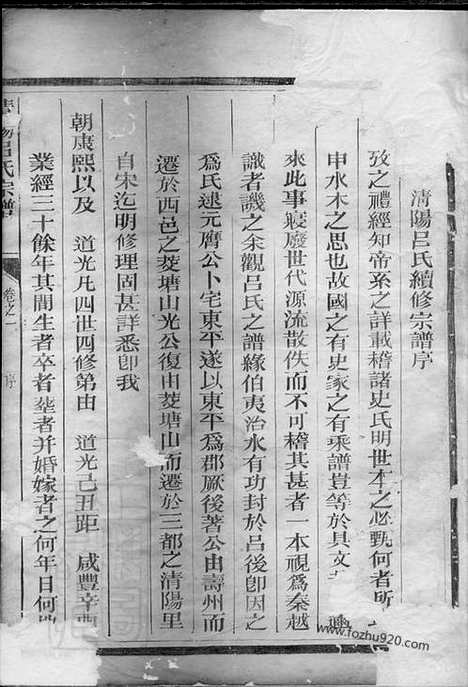 清陽呂氏續修宗譜序
攷之禮經知帝系之詳載稽諸史氏明世本之必甄何者所
申水木之思也故國之有史家之有乘譜豈等於具文
來此事寢廢世代源流散佚而不可稽其甚者一本視爲秦越
識者譏之余觀呂氏之譜緣伯夷治水有功封於呂後卽因之
爲氏逮元膺公卜宅東平遂以東平爲郡厥後著公由壽州而
遷於西邑之菱塘山光公復由菱塘山而遷於三都之清陽里
自宋迄明修理固甚詳悉卽我
朝康熙以及 道光凡四世四修第由 道光己丑距 咸豐辛
業經三十餘年其間生者卒者塟者并婚嫁者之何年日何
清陽呂氏宗譜
卷之一
序
www.fozhu920.com